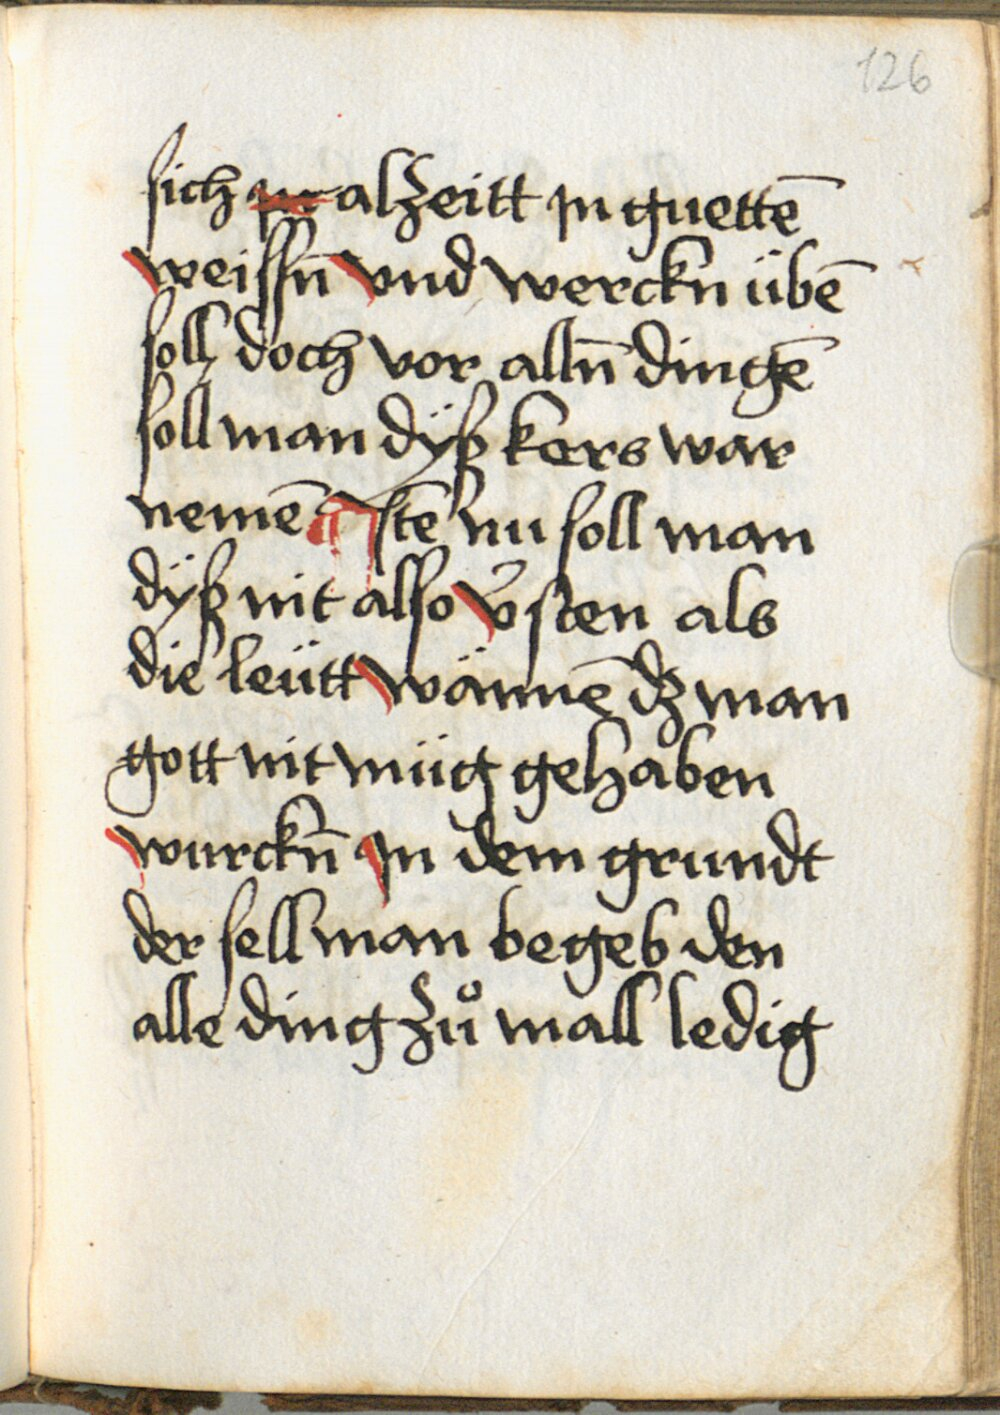 126
sich alzeitt jn guettē
weissn̄ vnd werckn übē
soll doch vor alln̄ dingē
soll man dÿß kers war
nemē nu soll man
dÿß nit also v̄sten als
die leütt wännē dz man
gott nit müg gehaben
wurckn̄ jn dem grundt
der sell man begeb den
alle ding zů mall ledig